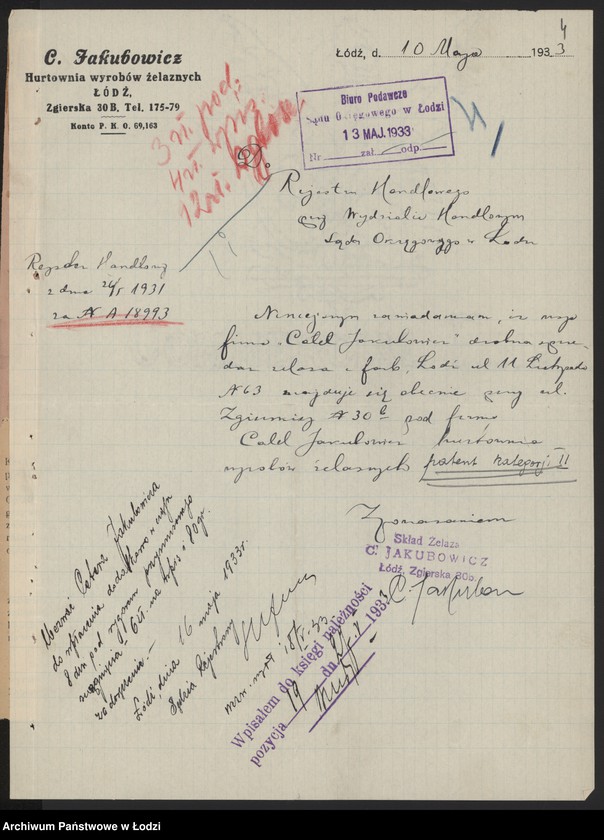 4
C. Jakubowicz
Hurtownia wyrobów żelaznych
ŁÓDŹ,
Zgierska 30B, Tel. 175-79
Konto P. K. O. 69,163
Łódź, d. 10 Maja 1933
Biuro Podawcze
Sądu Okręgowego w Łodzi
13 MAJ. 1933
Nr zał. odp.
3 zł. pod.
4 zł. wpis.
12 zł.
Do
Rejestru Handlowego
przy Wydziale Handlowym
Sądu Okręgowego w Łodzi
Rejester Handlowy
z dnia 1931
za № A 18993
Niniejszym zawiadamiam, iż moja
firma „Calel Jakubowicz" drobna sprze-
daż żelaza i farb, Łódź ul 11 Listopada
№ 63 znajduje się obecnie przy ul.
Zgierskiej № 30b pod firmą
Calel Jakubowicz hurtownia
wyrobów żelaznych patent kategorji II
Z poważaniem
Skład Żelaza
C. JAKUBOWICZ
Łódź, Zgierska 30b.
C. Jakubow
Wezwać Jakubowicza
do wpłacenia dodatkowo w ciągu
8 dni pod rygorem
6 zł. na wpis i 80 gr.
za doręczenie –
Łódź, dnia 16 maja 1933 r.
Sędzia Rejestrowy
Wpisałem do księgi należności
pozycja 19 dn. 1933